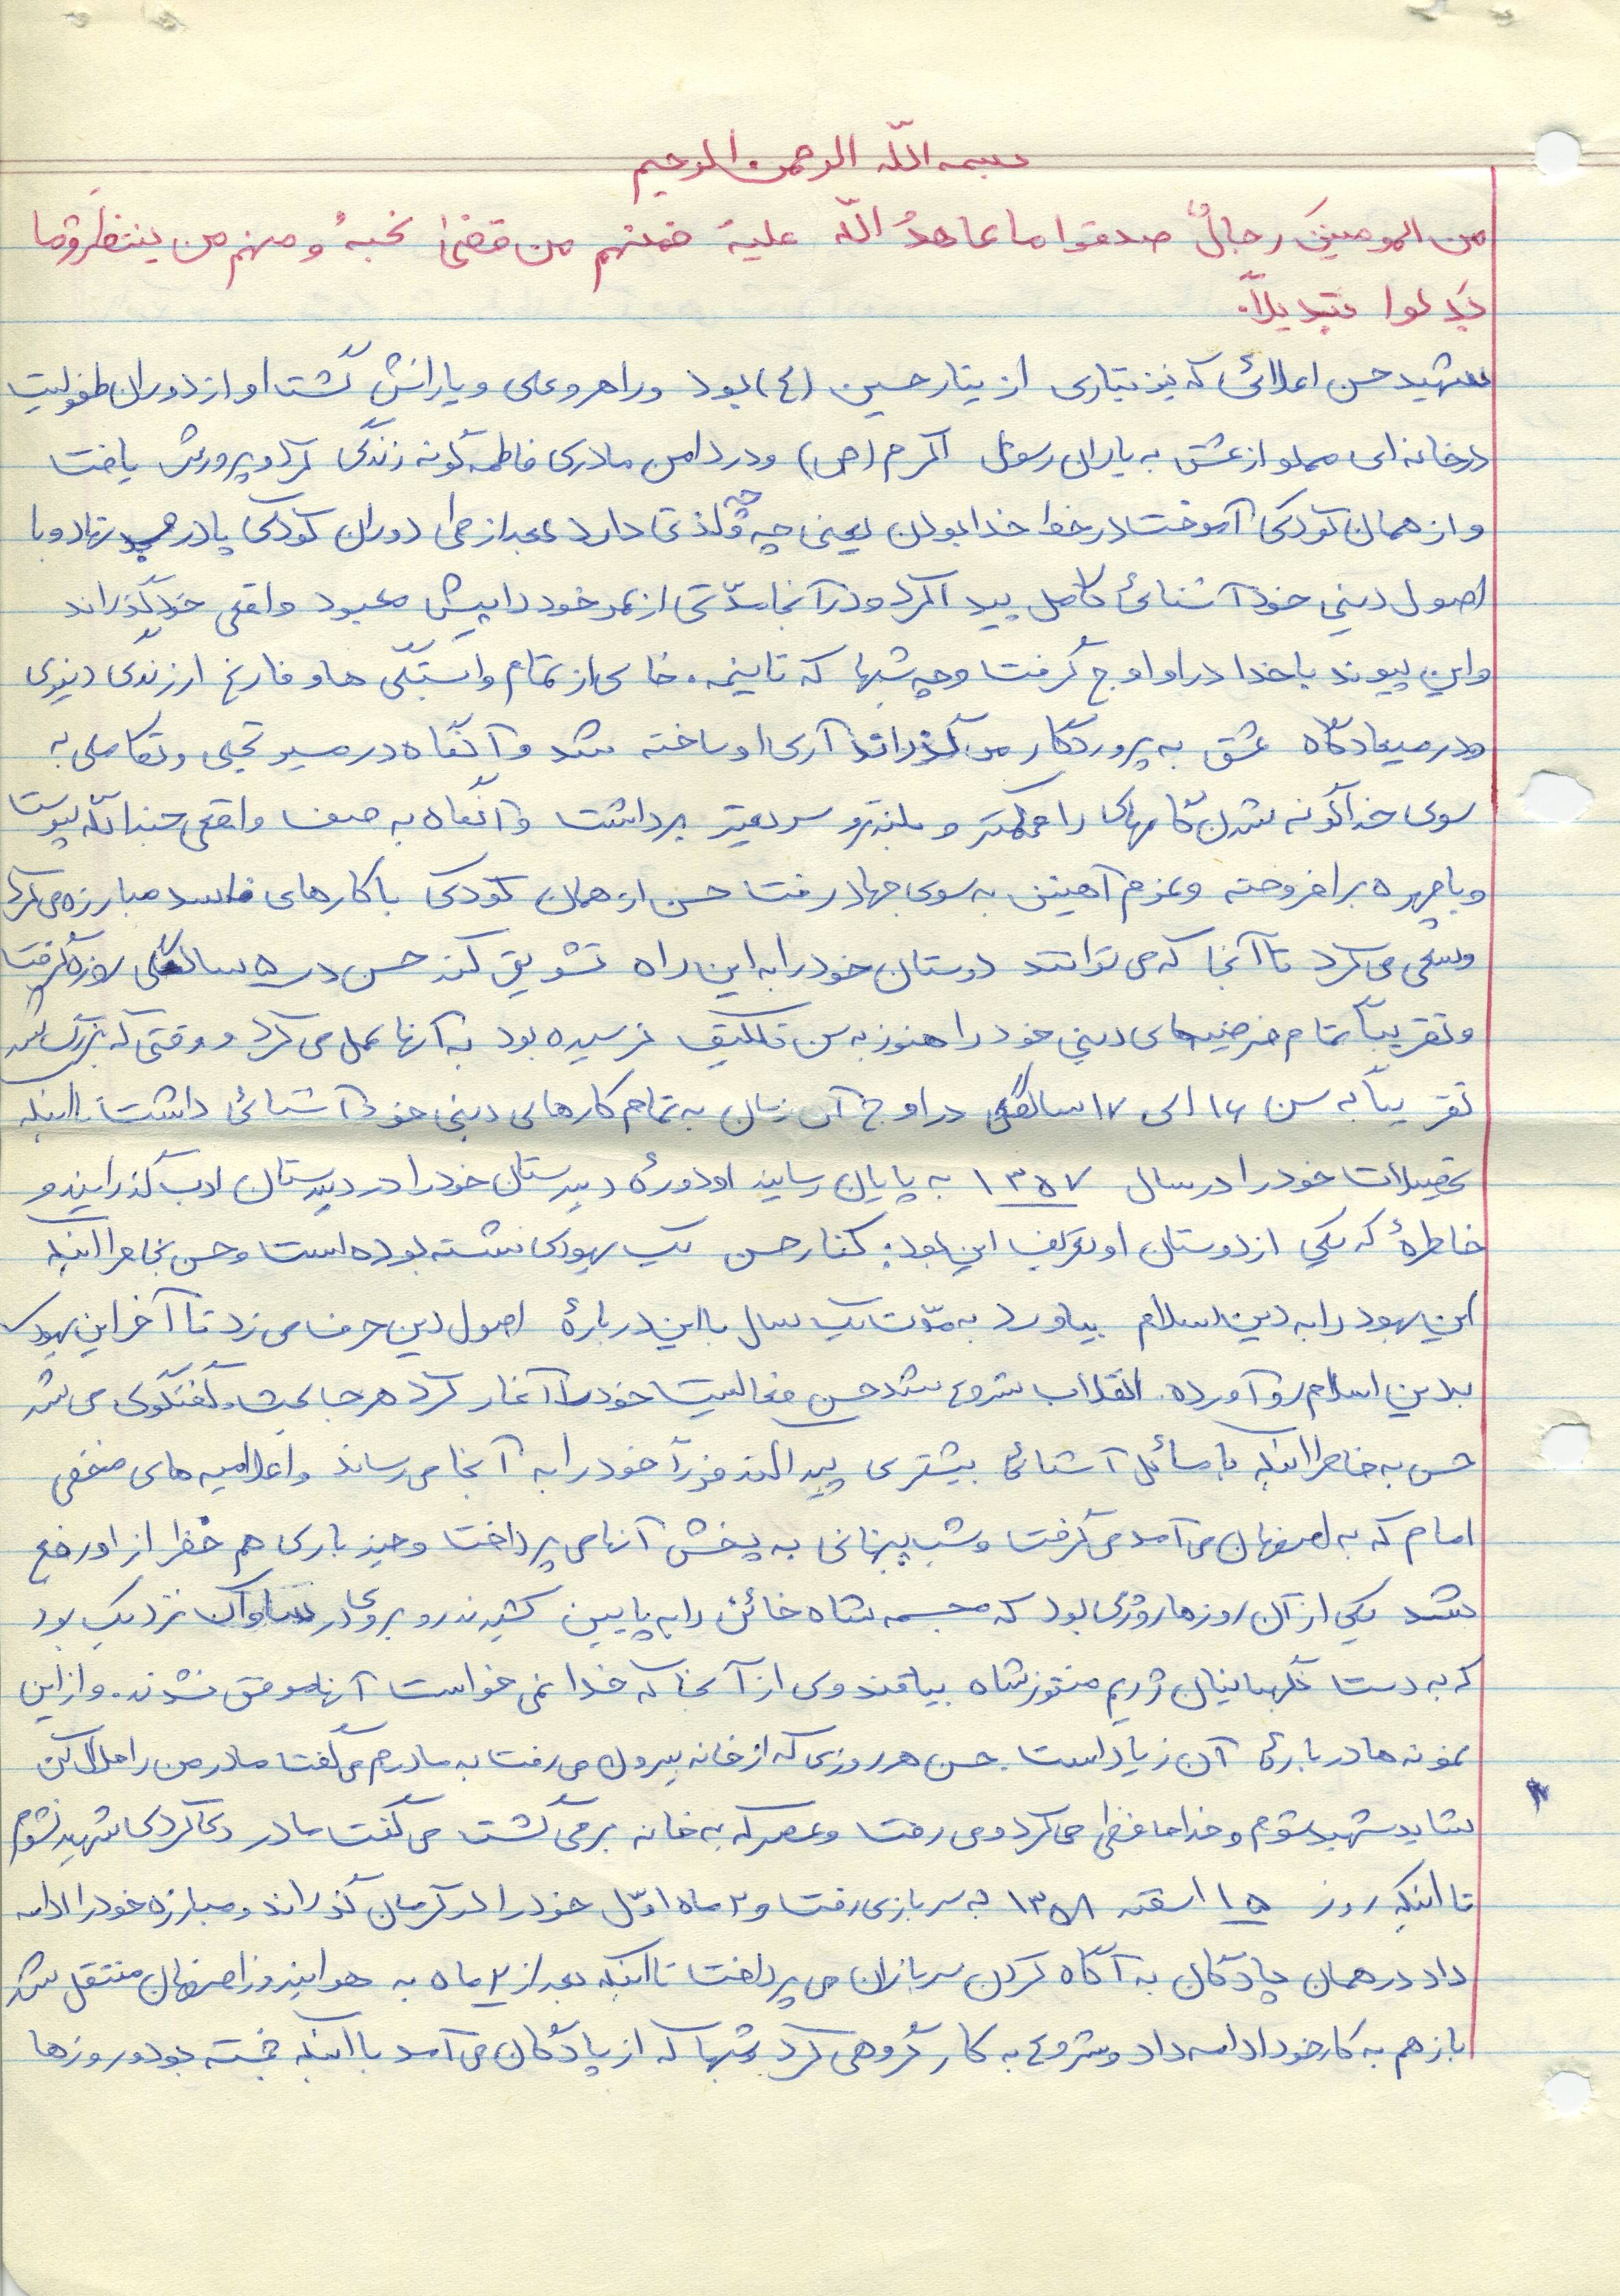 بسمه اللّه الرحمن الرحیم
من المومنین رجالٌ صدقوا ما عاهدُ اللّه علیهٔ فمنهم من قضیٰ نحبهُ و منهم من ینتظر و ما
بَدلوا تبدیلاً.
شهید حسن اعلائی که نیز تباری از تبار حسین (ع) بود و راهرو علی و یارانش گشت او از دوران طفولیت
در خانه‌ای مملو از عشق به یاران رسول اکرم (ص) و در دامن مادری فاطمه گونه زندگی کرد و پرورش یافت
و از همان کودکی آموخت در خط خدا بودن یعنی چه و چه لذتی دارد بعد از طی دوران کودکی پا در نهاد و با
اصول دینی خود آشنائی کامل پیدا کرد و در آنجا مدّتی از عمر خود را پیش معبود واقعی خود گذراند
و این پیوند با خدا در او اوج گرفت و چه شبها که تا نیمه. خالی از تمام وابستگی ها و فارغ از زندگی دنیوی
و در میعادگاه عشق به پروردگار می گذراند آری او ساخته شد و آنگاه در مسیر تجلی و تکاملی به
سوی خداگونه شدن گامهای را محکمتر و بلندتر و سریعتر برداشت و آنگاه به صف واقعی جندالله پیوست
و با چهره برافروخته و عزم آهنین به سوی جهاد رفت حسن از همان کودکی با کارهای فاسد مبارزه می کرد
و سعی می کرد تا آنجا که می توانند دوستان خود را به این راه تشویق کند حسن در ۵ سالگی روزه گرفت
و تقریباً تمام فرضیه‌های دینی خود را هنوز به سن تکلیف نرسیده بود به آنها عمل می کرد و وقتی که بزرگ شد
تقریباً به سن ۱۶ الی ۱۷ سالگی در اوج آن زمان به تمام کارهای دینی خود آشنائی داشت تا اینکه
تحصیلات خود را در سال ۱۳۵۷ به پایان رسانید او دورهٔ دبیرستان خود را در دبیرستان ادب گذرانید و
خاطرهٔ که یکی از دوستان او تعریف این بود: کنار حسن یک یهودی نشسته بوده است و حسن بخاطر اینکه
این یهود را به دین اسلام بیاورد به مدّت یک سال با این دربارهٔ اصول دین حرف می زد تا آخر این یهودی
بدین اسلام رو آورده. انقلاب شروع شد حسن فعالیت خود را آغار کرد هر جا بحث و گفتگوی می شد
حسن به خاطر اینکه با مسائل آشنائی بیشتری پیدا کند فوراً خود را به آنجا می رساند و اعلامیه های مخفی
امام که به اصفهان می آمد می گرفت و شب پنهانی به پخش آنها می پرداخت و چند باری هم خطر از او رفع
شد یکی از آن روزها روزی بود که مجسمه شاه خائن را به پایین کشیدند روبروی در ساواک نزدیک بود
که به دست نگهبانیان رژیم منفور شاه بیافتد ولی از آنجا که خدا نمی خواست آنها موفق نشدند. و از این
نمونه ها دربارهٔ آن زیاد است. حسن هر روزی که از خانه بیرون می رفت به مادرم می گفت مادر من را حلال کن
شاید شهید شوم و خداحافظی می کرد و می رفت و عصر که به خانه بر می گشت می گفت مادر دعا کردی شهید نشوم
تا اینکه روز ۱۵ اسفند ۱۳۵۸ به سربازی رفت و ۲ ماه اوّل خود را در کرمان گذراند و مبارزه خود را ادامه
داد در همان پادگان به آگاه کردن سربازان می پرداخت تا اینکه بعد از ۲ ماه به هوانیروز اصفهان منتقل شد
باز هم به کار خود ادامه داد و شروع به کار گروهی کرد شبها که از پادگان می آمد با اینکه خسته بود و روزها